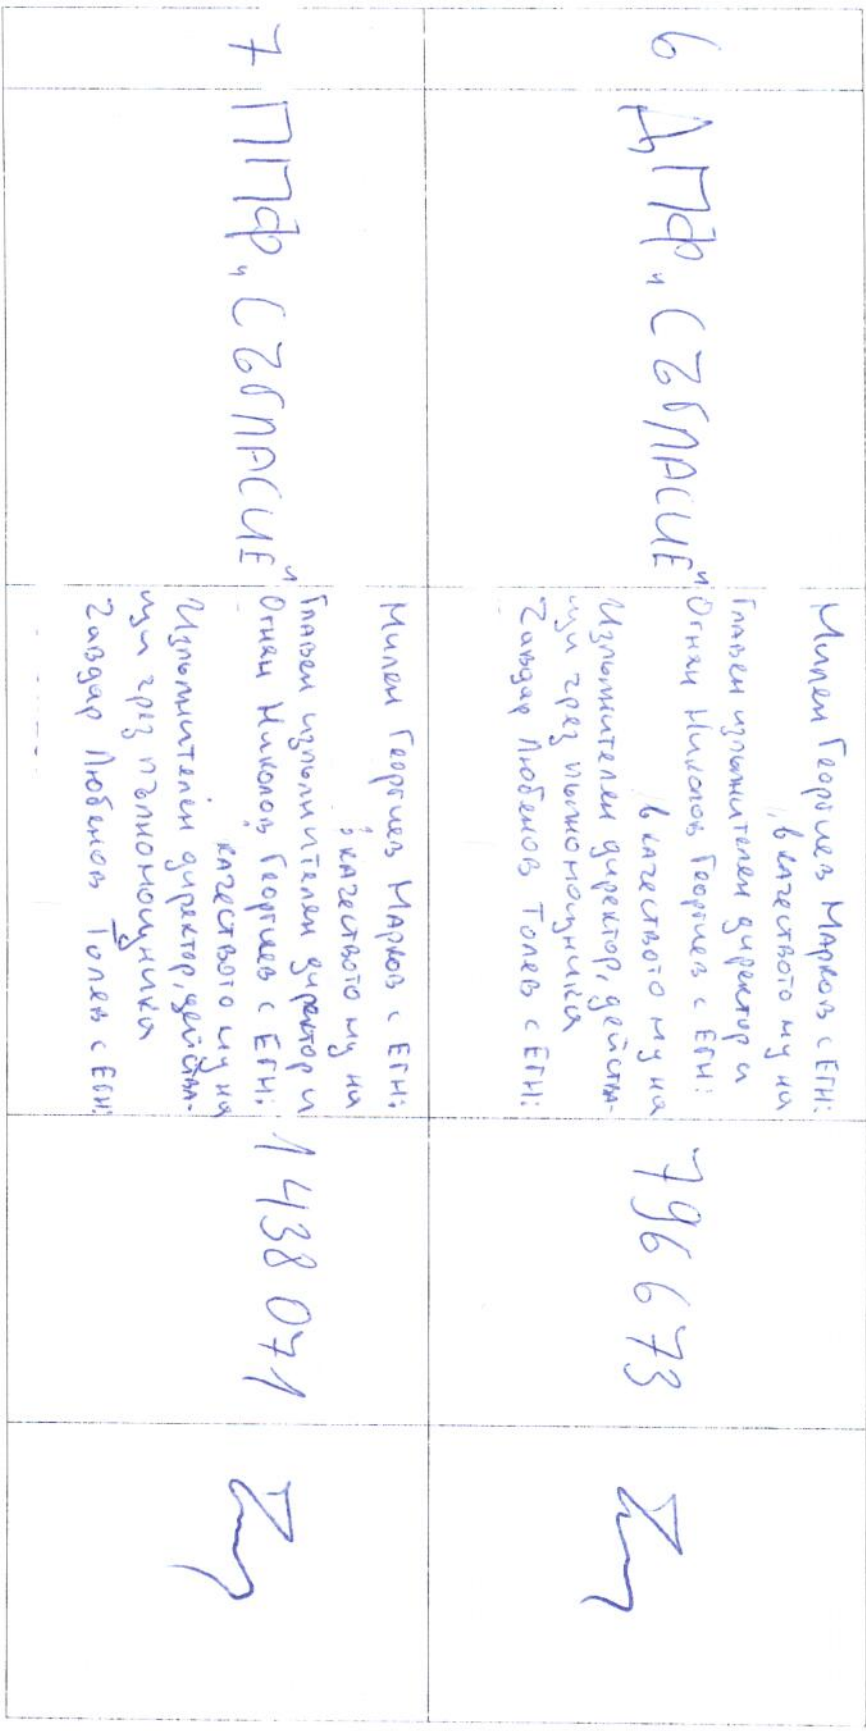 6
ДПФ „СЪГЛАСИЕ"
Милен Георгиев Марков с ЕГН:
, в качеството му на
Главен изпълнителен директор и
Огнян Николов Георгиев с ЕГН:
в качеството му на
Изпълнителен директор, действа-
щи чрез пълномощника
Гавдар Любенов Голев с ЕГН:
796 673
7
ППФ „СЪГЛАСИЕ"
Милен Георгиев Марков с ЕГН:
в качеството му на
Главен изпълнителен директор и
Огнян Николов Георгиев с ЕГН:
качеството му на
Изпълнителен директор, действа-
щи чрез пълномощника
Гавдар Любенов Голев с ЕГН:
1 438 071